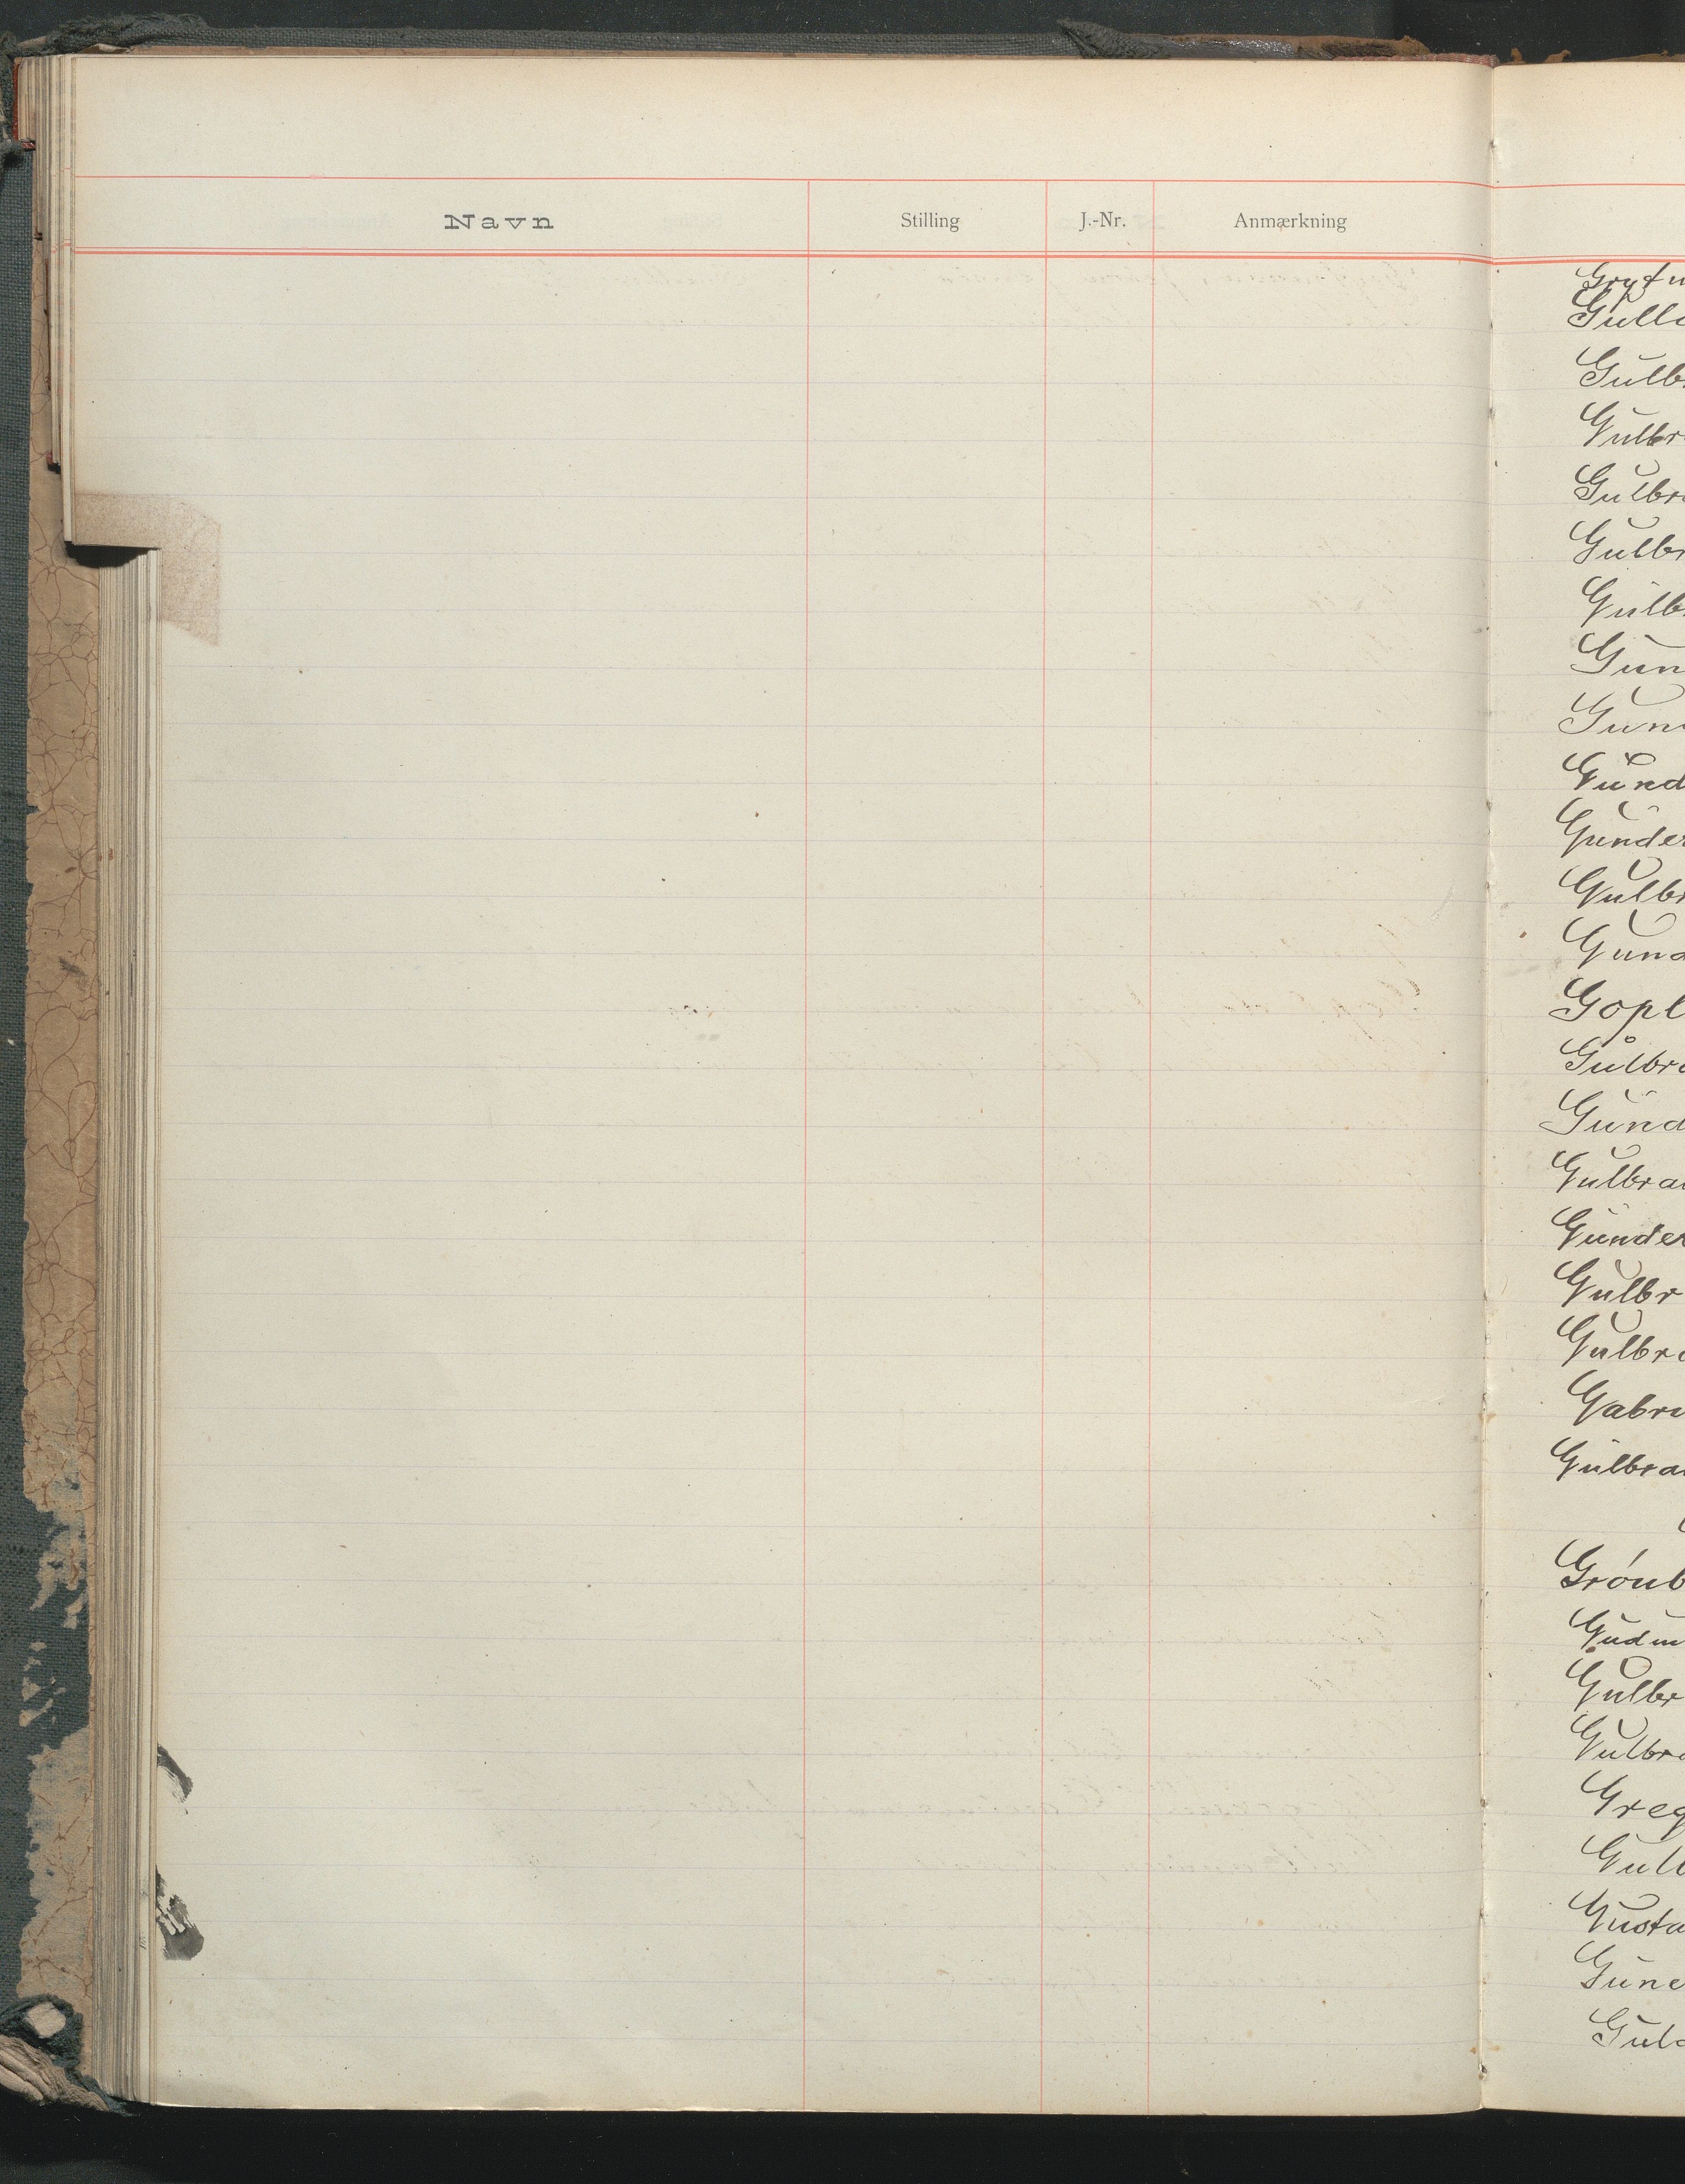 Navn Stilling J.-Nr. Anmærkning
Gulb
Gulbr
Gulbr
Gulbr
Gulb
Gun
Gun
Gund
Gunder
Gulbr
Gund
Gopl
Gulbr
Gund
Gulbra
Gunder
Gulbr
Gulbra
Gabri
Gulbra
Grønb
Gudm
Gulbr
Gulbra
Greg
Gulb
Gusta
Gun
Gul